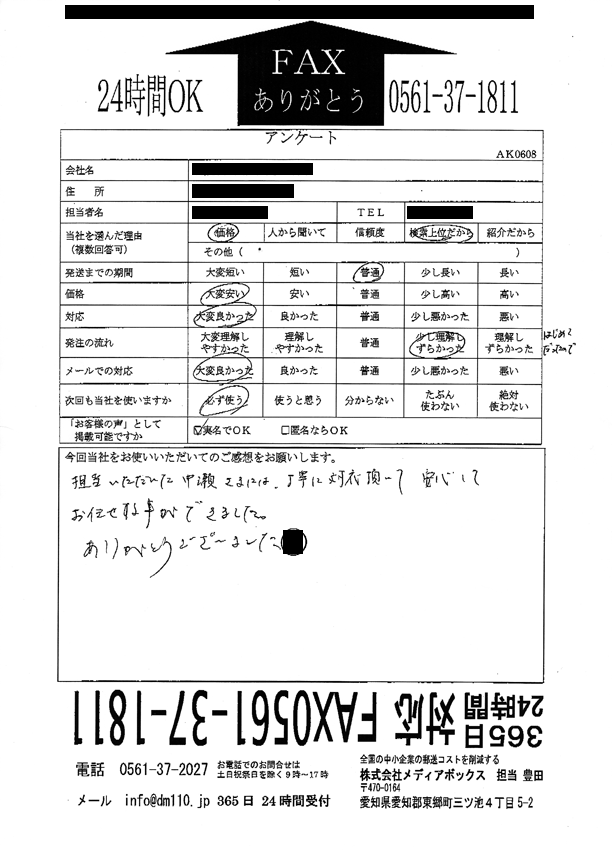 FAX
ありがとう
24時間OK
0561-37-1811
アンケート
AK0608
会社名
住 所
担当者名 TEL
当社を選んだ理由
(複数回答可)
価格 人から聞いて 信頼度 検索上位だから 紹介だから
その他 ( )
発送までの期間 大変短い 短い 普通 少し長い 長い
価格 大変安い 安い 普通 少し高い 高い
対応 大変良かった 良かった 普通 少し悪かった 悪い
発注の流れ 大変理解しやすかった 理解しやすかった 普通 少し理解しずらかった 理解しずらかった
はじめて
だったので
メールでの対応 大変良かった 良かった 普通 少し悪かった 悪い
次回も当社を使いますか 必ず使う 使うと思う 分からない たぶん使わない 絶対使わない
「お客様の声」として
掲載可能ですか
☑実名でOK □匿名ならOK
今回当社をお使いいただいてのご感想をお願いします。
担当いただいた中瀬さまには、丁寧に対応頂いて 安心して
お任せする事ができました。
ありがとうございました
365日24時間対応 FAX0561-37-1811
電話 0561-37-2027 お電話でのお問合せは
土日祝祭日を除く9時~17時
メール info@dm110.jp 365日24時間受付
全国の中小企業の郵送コストを削減する
株式会社メディアボックス 担当 豊田
〒470-0164
愛知県愛知郡東郷町三ツ池4丁目5-2